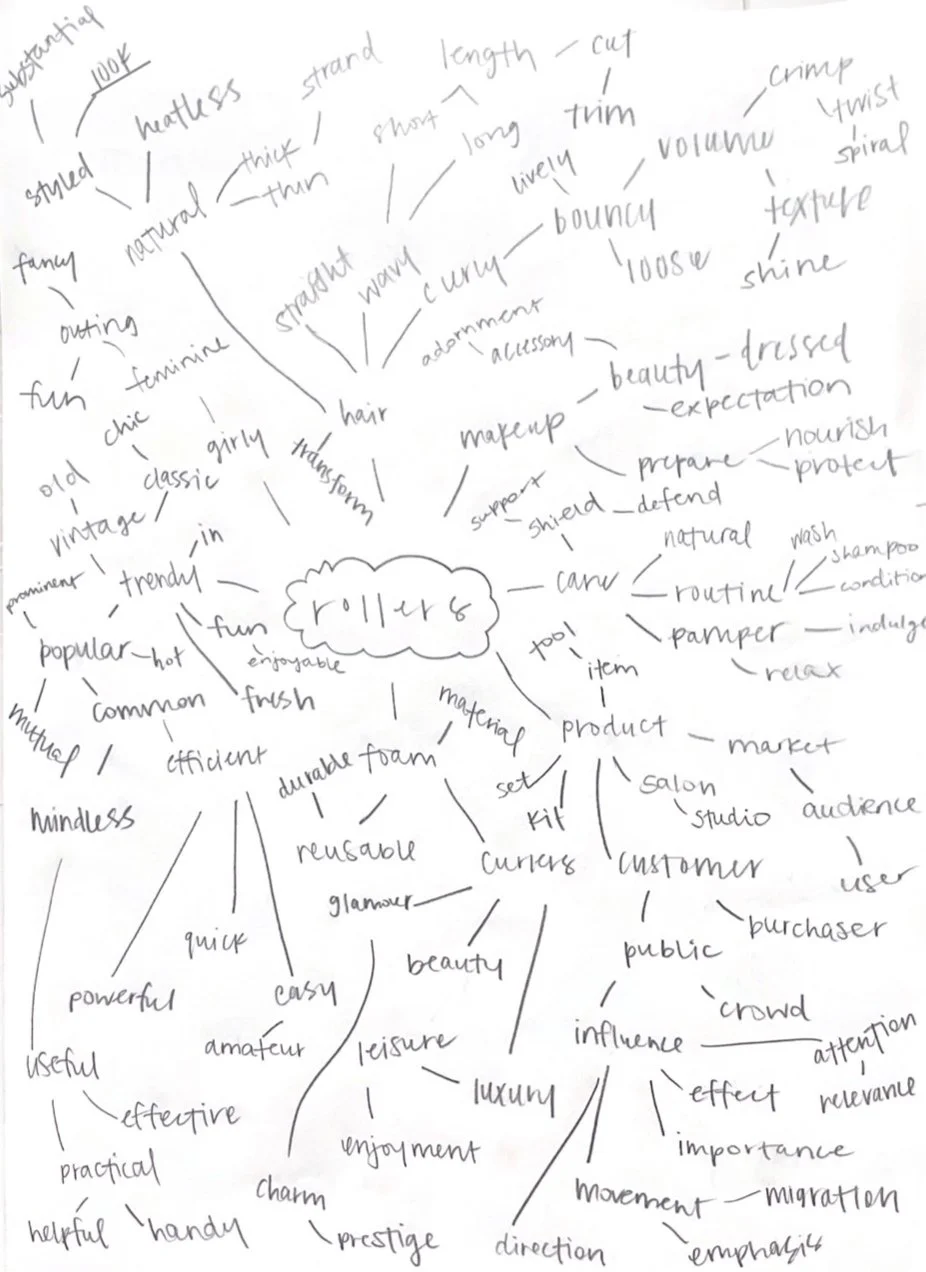 substantial
100K
heatless
strand
length
cut
short
long
trim
crimp
twist
spiral
volume
styled
thick
thin
lively
natural
bouncy
texture
loose
shine
fancy
straight
wavy
curly
outing
adornment
accessory
feminine
fun
beauty
dressed
expectation
chic
girly
hair
makeup
nourish
protect
prepare
transform
old
classic
support
shield
defend
vintage
in
natural
wash
shampoo
condition
prominent
trendy
rollers
care
routine
pamper
indulge
relax
popular
hot
fun
enjoyable
tool
item
common
fresh
material
product
market
mutual
efficient
durable
foam
set
kit
salon
studio
audience
mindless
reusable
curlers
customer
user
glamour
quick
beauty
public
purchaser
powerful
easy
crowd
amateur
leisure
influence
attention
relevance
useful
luxury
effect
effective
enjoyment
importance
practical
charm
movement
migration
helpful
handy
prestige
direction
emphasis